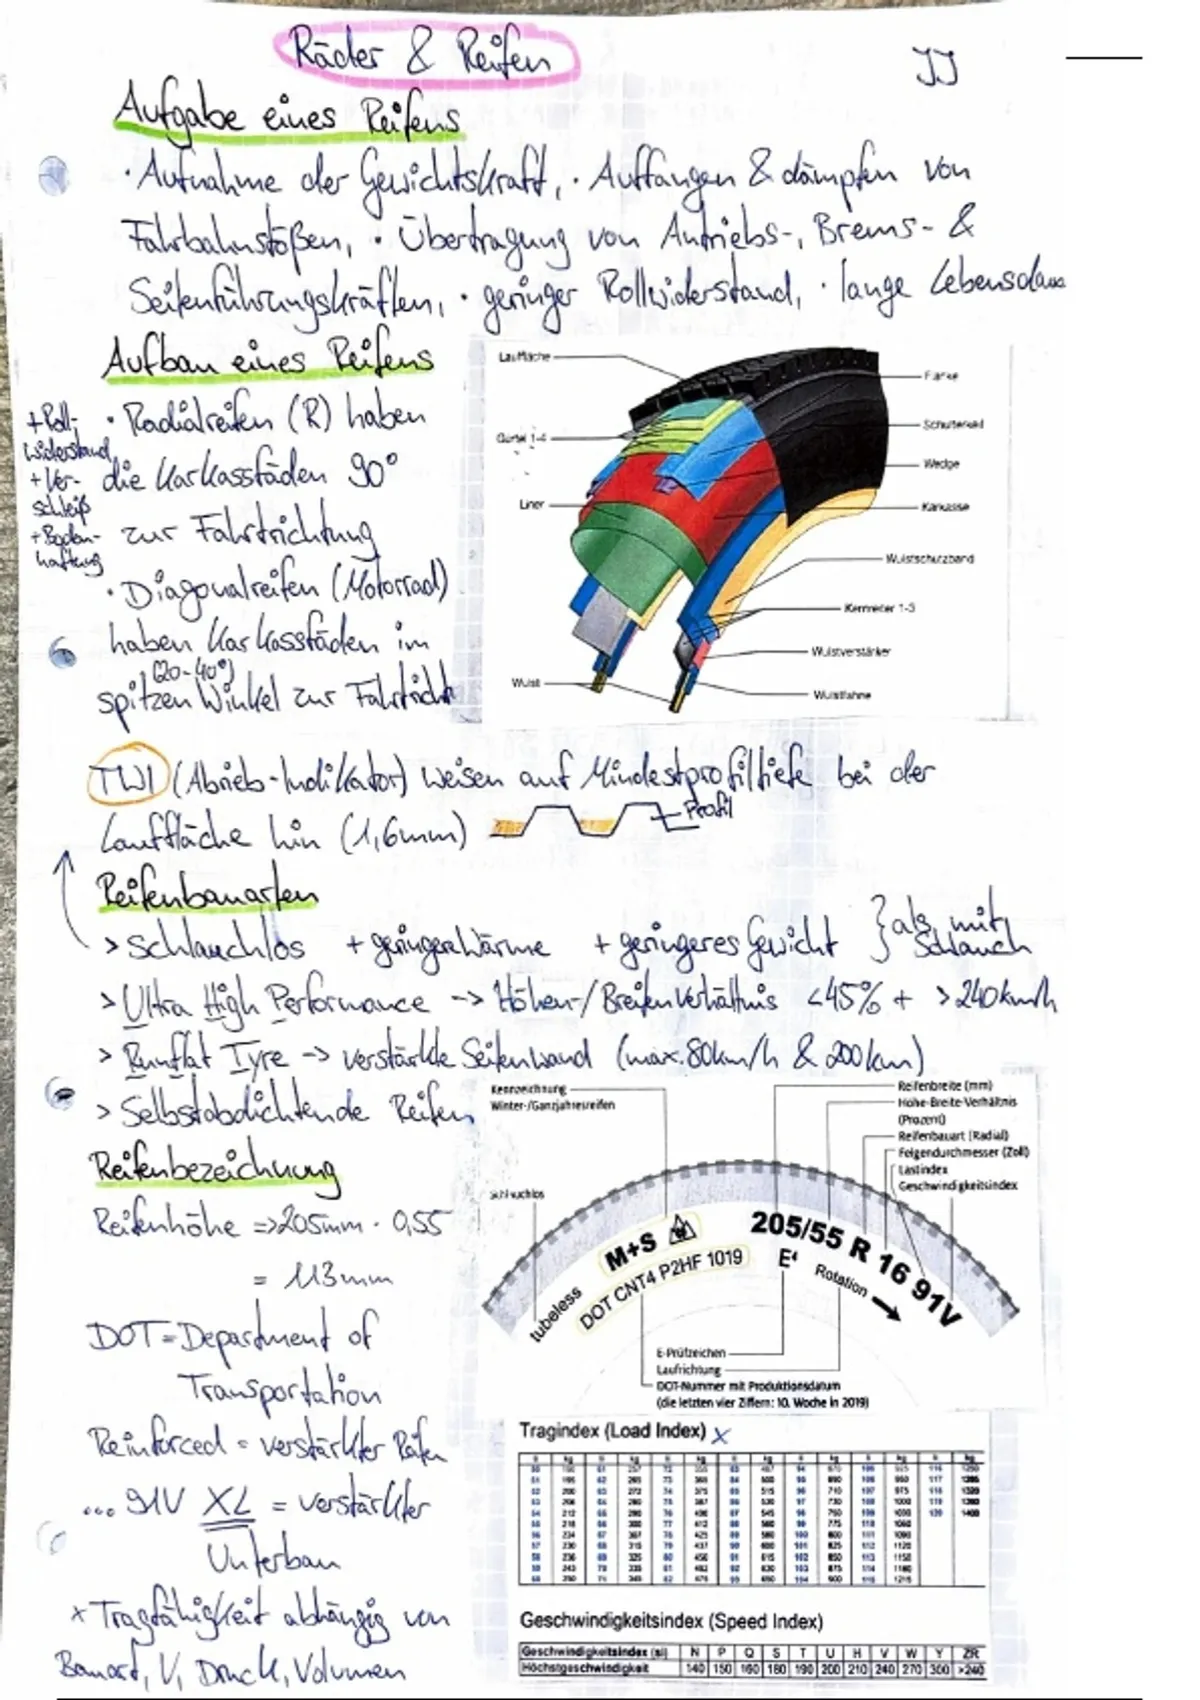 Räder & Reifen
JJ
Aufgabe eines Reifens
· Aufnahme der Gewichtskraft, · Auffangen & dämpfen von
Fahrbahnstößen, · Übertragung von Antriebs-, Brems- &
Seitenführungskräften, · geringer Rollwiderstand, · lange Lebensdau
Aufbau eines Reifens
· Radialreifen (R) haben
die Karkassfäden 90°
zur Fahrtrichtung
+ Roll-
widerstand
+ Ver-
schleiß
+ Boden-
haftung
· Diagonalreifen (Motorrad)
haben Karkassfäden im
(20-40°)
spitzen Winkel zur Fahrtricht
Lauffläche
Gürtel 1-4
Liner
Wulst
Flanke
Schulterkeil
Wedge
Karkasse
Wulstschutzband
Kernreiter 1-3
Wulstverstärker
Wulstfahne
TWI (Abrieb-Indikator) weisen auf Mindestprofiltiefe bei der
Lauffläche hin (1,6mm)
Profil
Reifenbauarten
> Schlauchlos + geringere Wärme + geringeres Gewicht } als mit
Schlauch
> Ultra High Performance -> Höhen-/Breitenverhältnis <45% + >240km/h
> Runflat Tyre -> verstärkte Seitenwand (max. 80km/h & 200km)
> Selbstabdichtende Reifen
Reifenbezeichnung
Reifenhöhe => 205mm · 0,55
= 113mm
DOT = Department of
Transportation
Reinforced = verstärkter Reifen
... 91V XL = verstärkter
Unterbau
x Tragfähigkeit abhängig von
Bauart, V, Druck, Volumen
Kennzeichnung
Winter-/Ganzjahresreifen
Schlauchlos
Reifenbreite (mm)
Höhe-Breite-Verhältnis
(Prozent)
Reifenbauart (Radial)
Felgendurchmesser (Zoll)
Lastindex
Geschwindigkeitsindex
tubeless
M+S
DOT CNT4 P2HF 1019
205/55 R 16 91V
E4
Rotation
E-Prüfzeichen
Laufrichtung
DOT-Nummer mit Produktionsdatum
(die letzten vier Ziffern: 10. Woche in 2019)
Tragindex (Load Index) x
Geschwindigkeitsindex (Speed Index)
Geschwindigkeitsindex (si) N P Q S T U H V W Y ZR
Höchstgeschwindigkeit 140 150 160 180 190 200 210 240 270 300 >240